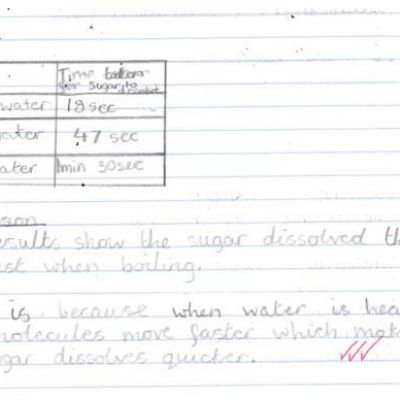 Time taken
for sugar to
water 18 sec
water 47 sec
ater 1min 30sec
sion
esults show the sugar dissolved th
est when boiling.
is because when water is hea
molecules move faster which mak
gar dissolves quicker.